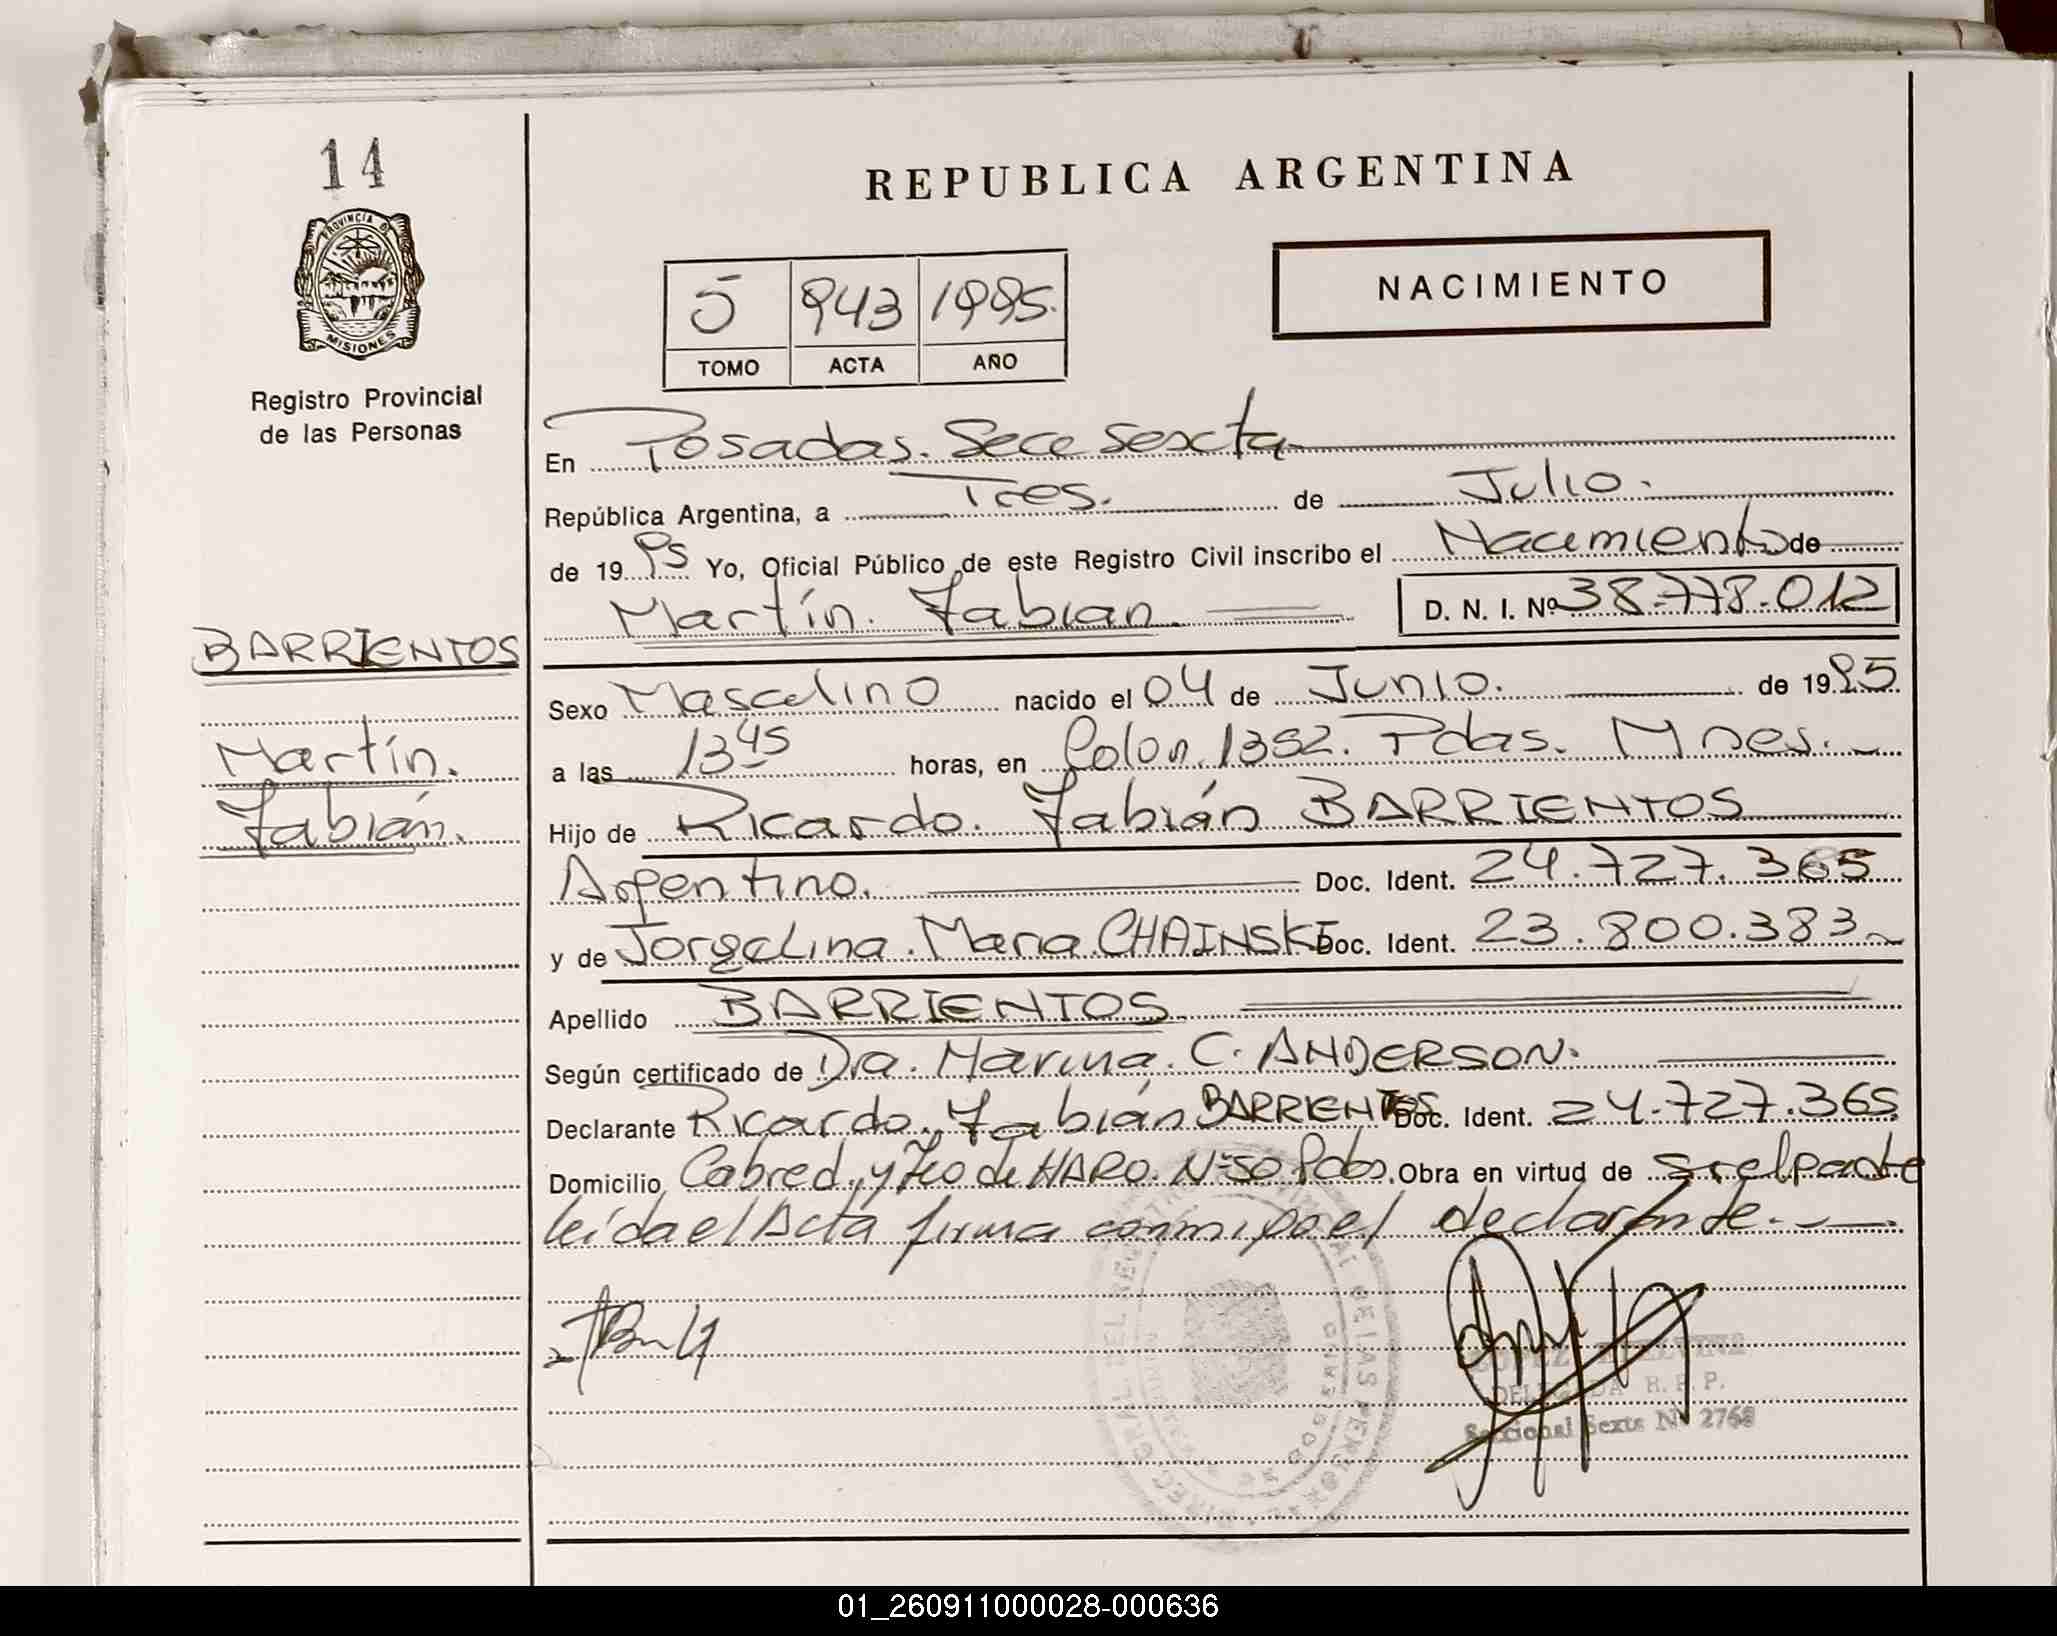 14
REPUBLICA ARGENTINA
PROVINCIA DE
MISIONES
Registro Provincial
de las Personas
NACIMIENTO
5 943 1995.
TOMO ACTA AÑO
En Posadas. Secc Sexta
República Argentina, a Tres. de Julio.
de 19 95 Yo, Oficial Público de este Registro Civil inscribo el Nacimiento de
Martín. Fabian. D. N. I. Nº 38.778.012
BARRIENTOS
Martín.
Fabián.
Sexo Masculino nacido el 04 de Junio. de 19 95
a las 13 45 horas, en Colon. 1352. Pdas. Mnes.
Hijo de Ricardo. Fabián BARRIENTOS
Argentino. Doc. Ident. 24.727.365
y de Jorgelina. Maria. CHAINSKI Doc. Ident. 23.800.383
Apellido BARRIENTOS
Según certificado de Dra. Marina. C. ANDERSON.
Declarante Ricardo. Fabián BARRIENTOS Doc. Ident. 24.727.365
Domicilio Cabred. y Fco de HARO. Nº 50 Pdas. Obra en virtud de ser el padre
leída el Acta firma conmigo el declarante.
DELEGADA R. P. P.
Seccional Sexta Nº 2768
01_260911000028-000636